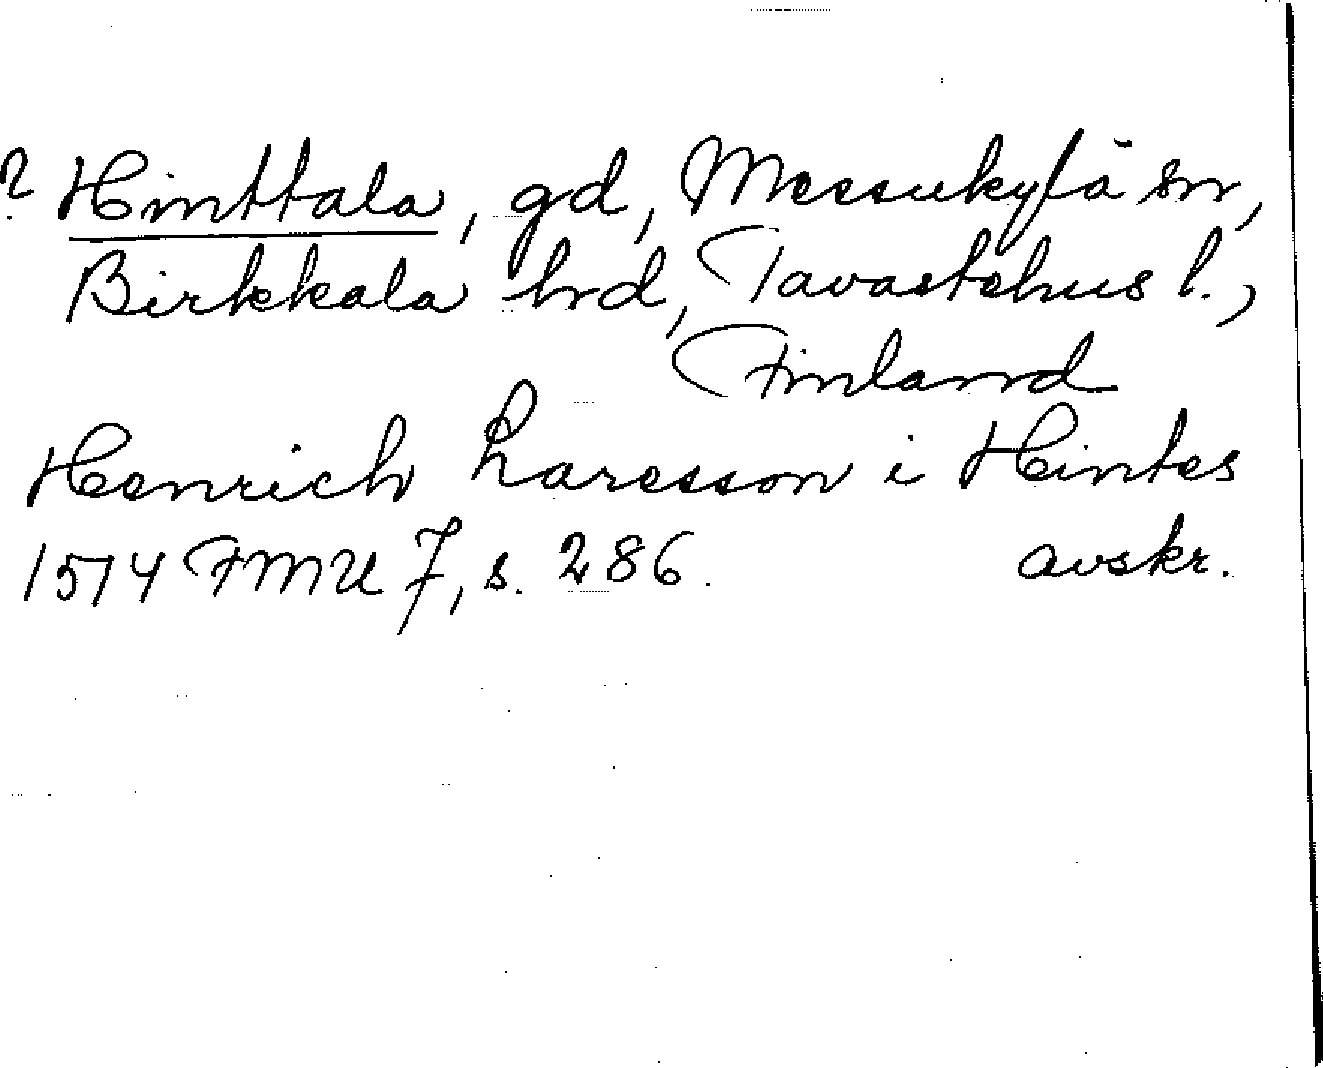 ? Hinttala, gd, Messukylä sn,
Birkkala hrd, Tavastehus l.,
Finland
Henrich Laresson i Hintes
1514 FMU 7, s. 286. avskr.